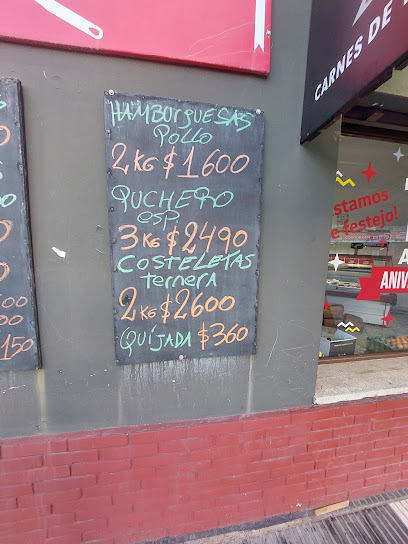 HAMBURGUESAS
POLLO
2 KG $1600
PUCHERO
esp.
3 KG $2490
COSTELETAS
Ternera
2 KG $2600
QUIJADA $360
150
CARNES DE
stamos
e festejo!
ANIV